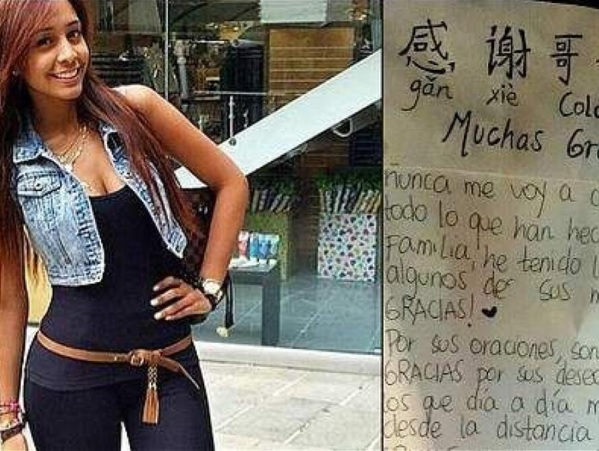 感 谢 哥
gǎn xiè Colo
Muchas Gra
nunca me voy a
todo lo que han hec
Familia, he tenido l
algunos de sus m
GRACIAS! ♥
Por sus oraciones, son
GRACIAS por sus dese
os que día a día m
desde la distancia